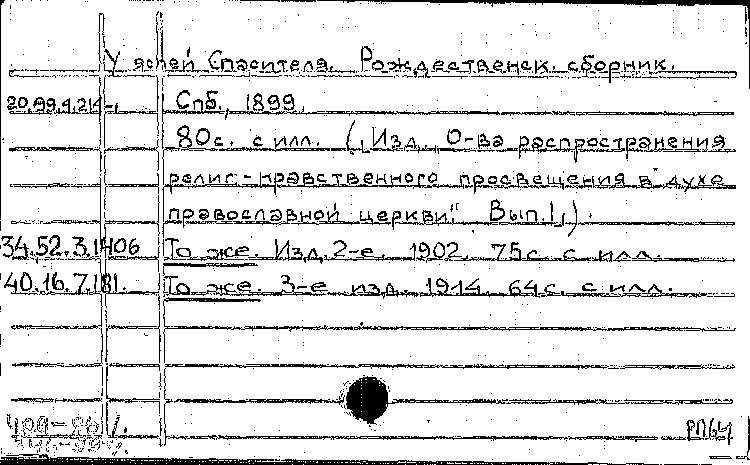 У яслей Спасителя. Рождественск. сборник.
20.99.4.214 Спб., 1899.
80с. с илл. („Изд. О-ва распространения
религ.-нравственного просвещения в духе
православной церкви". Вып. I,).
34.52.3.1406 То же. Изд. 2-е. 1902. 75с. с илл.
40.16.7.181. То же. 3-е изд. 1914. 64с. с илл.
РП64